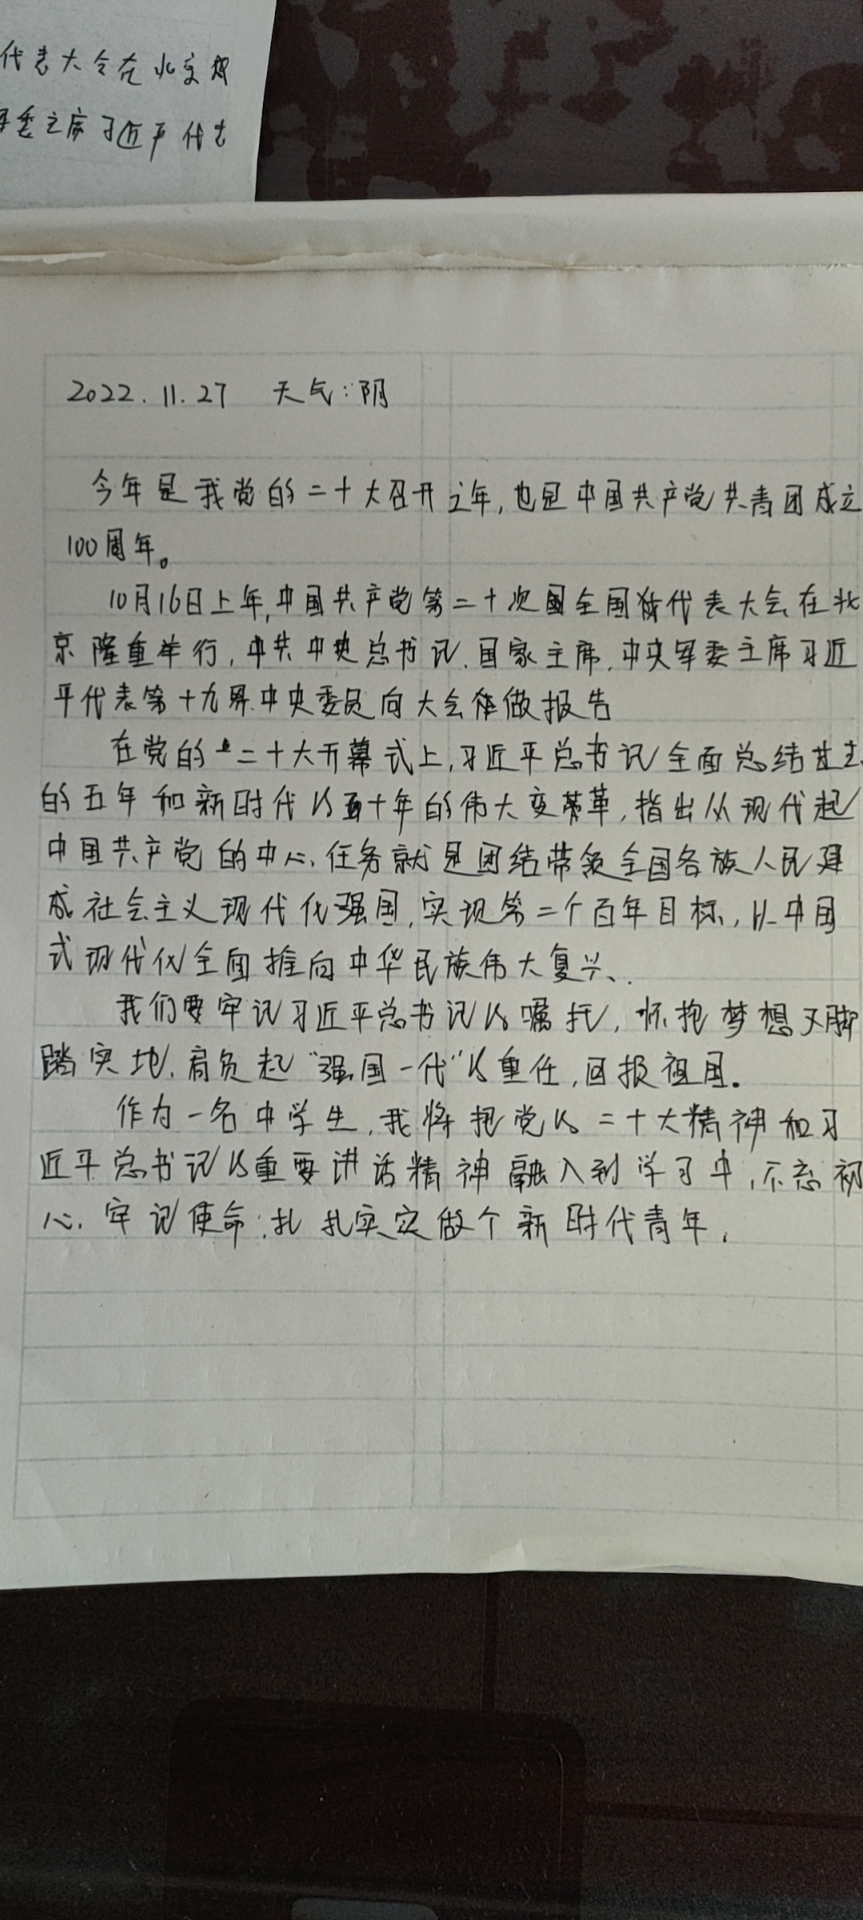 代表大会在北京
军委主席习近平代
2022.11.27 天气:阴
今年是我党的二十大召开之年,也是中国共产党共青团成立
100周年。
10月16日上年,中国共产党第二十次全国代表大会在北
京隆重举行,中共中央总书记.国家主席.中央军委主席习近
平代表第十九界中央委员向大会做报告
在党的二十大开幕式上,习近平总书记全面总结过去
的五年和新时代以十年的伟大变革,指出从现代起
中国共产党的中心.任务就是团结带领全国各族人民建
成社会主义现代化强国,实现第二个百年目标,以中国
式现代化全面推向中华民族伟大复兴、
我们要牢记习近平总书记的嘱托,怀抱梦想又脚
踏实地.肩负起“强国一代”的重任,回报祖国。
作为一名中学生,我将把党的二十大精神和习
近平总书记的重要讲话精神融入到学习中,不忘初
心.牢记使命.扎扎实实做个新时代青年.